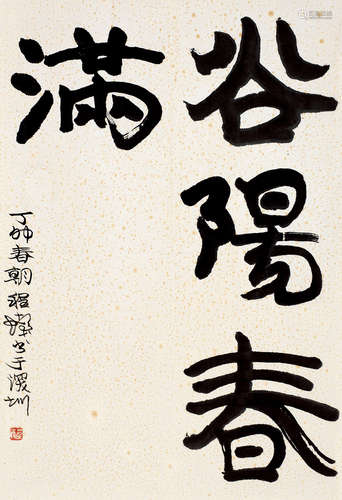 谷陽春
滿
丁卯春朝程與書于深圳